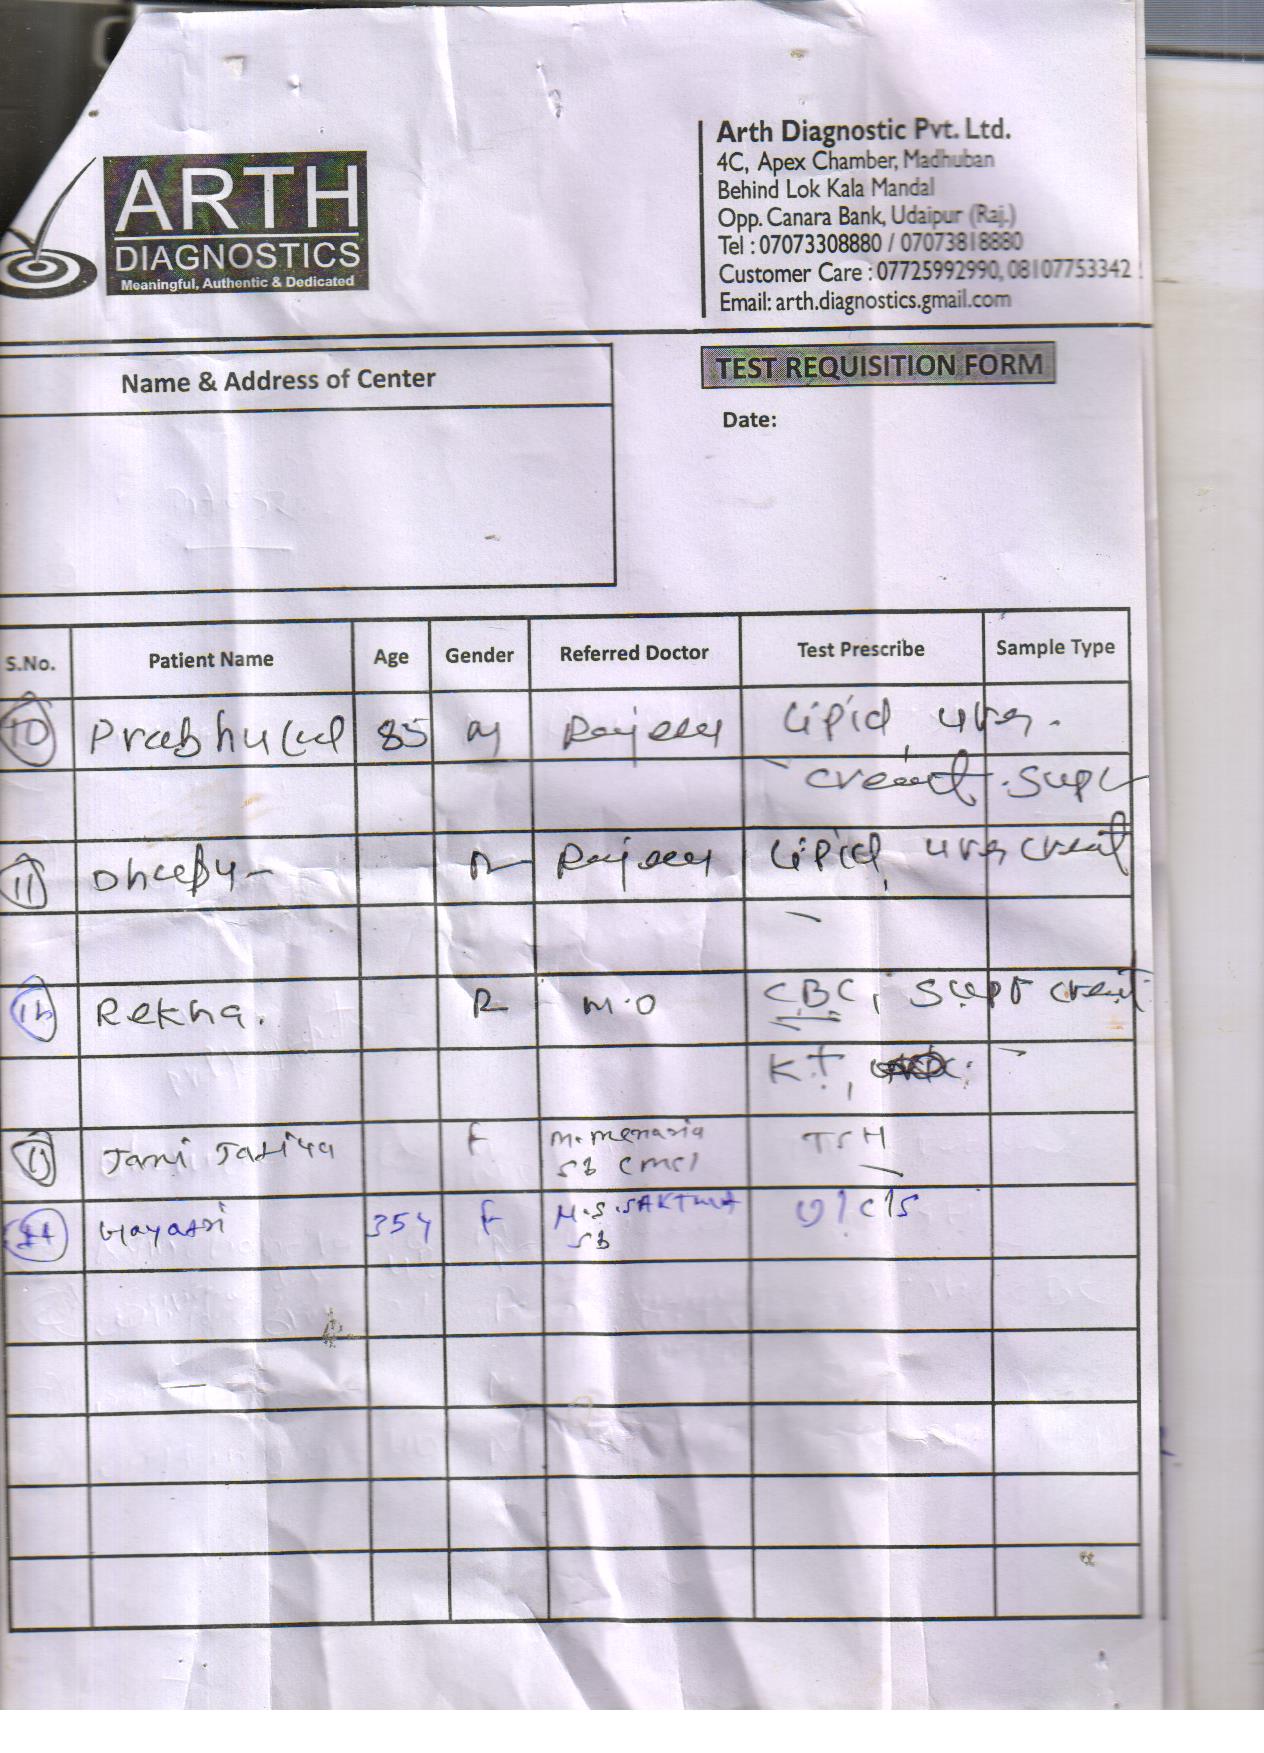 ARTH
DIAGNOSTICS
Meaningful, Authentic & Dedicated
Arth Diagnostic Pvt. Ltd.
4C, Apex Chamber, Madhuban
Behind Lok Kala Mandal
Opp. Canara Bank, Udaipur (Raj.)
Tel : 07073308880 / 07073818880
Customer Care : 07725992990, 08107753342
Email: arth.diagnostics.gmail.com
Name & Address of Center
TEST REQUISITION FORM
Date:
S.No. Patient Name Age Gender Referred Doctor Test Prescribe Sample Type
10 Prabhulal 85 M Lipid,
creat
11 Lipid, creat
12 Rekha. M.O CBC, creat
KT,
13 Jani F M. Menaria TSH
14 35Y F M.S. c/s